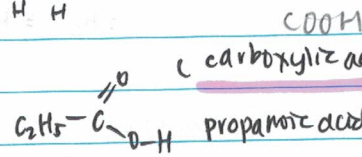 H H
COOH
( carboxylic
O
C2H5-C
O-H propanoic acid